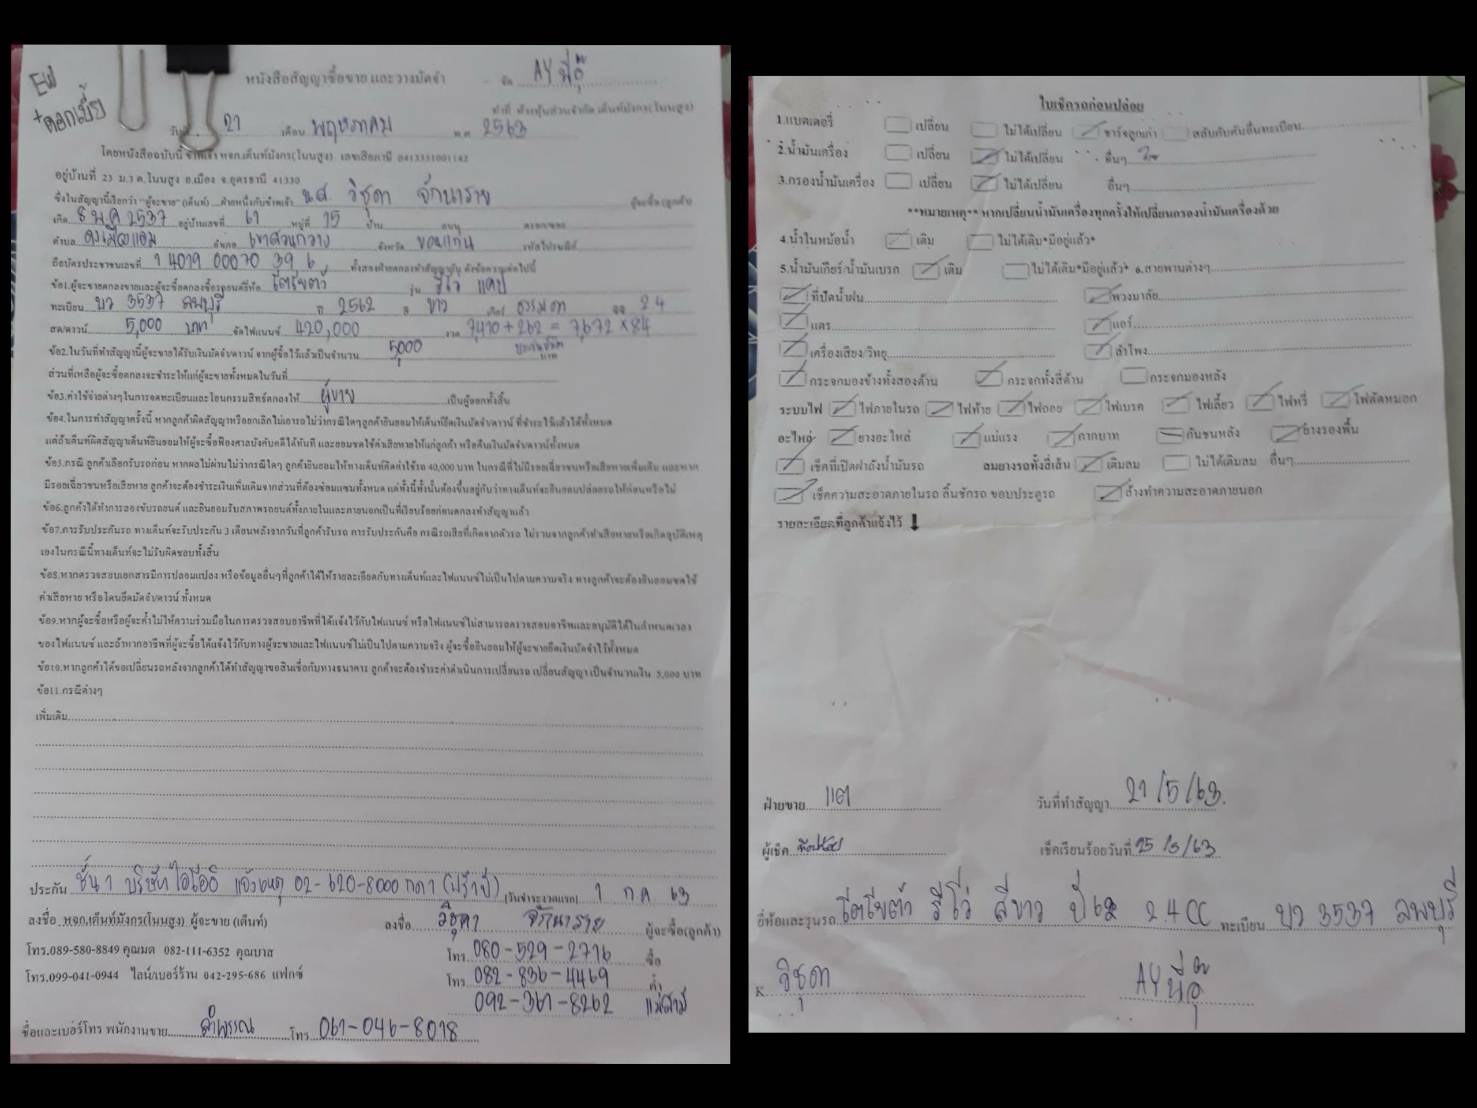 EW
+ดอกเบี้ย
หนังสือสัญญาซื้อขาย และวางมัดจำ
จัด AY พี่อู๊
ทำที่ ห้างหุ้นส่วนจำกัด เต็นท์มังกร(โนนสูง)
วันที่ 21 เดือน พฤษภาคม พ.ศ. 2563
โดยหนังสือฉบับนี้ ข้าพเจ้า หจก.เต็นท์มังกร(โนนสูง) เลขเสียภาษี 0413551001142
อยู่บ้านที่ 23 ม.3 ต.โนนสูง อ.เมือง จ.อุดรธานี 41330
ซึ่งในสัญญานี้เรียกว่า "ผู้จะขาย" (เต็นท์) ฝ่ายหนึ่งกับข้าพเจ้า น.ส. วิชุดา จักนาราย ผู้จะซื้อ (ลูกค้า)
เกิด 8 ม.ค 2537 อยู่บ้านเลขที่ 61 หมู่ที่ 15 บ้าน ถนน ตรอก/ซอย
ตำบล ดงเมืองแอม อำเภอ เขาสวนกวาง จังหวัด ขอนแก่น รหัสไปรษณีย์
ถือบัตรประชาชนเลขที่ 1 4019 00070 39 6 ทั้งสองฝ่ายตกลงทำสัญญากัน ดังข้อความต่อไปนี้
ข้อ1.ผู้จะขายตกลงขายและผู้จะซื้อตกลงซื้อรถยนต์ยี่ห้อ โตโยต้า รุ่น รีโว่ แคป
ทะเบียน บว 3537 ลพบุรี ปี 2562 สี ขาว เกียร์ ธรรมดา ซีซี 2.4
สด/ดาวน์ 5,000 บาท จัดไฟแนนซ์ 420,000 งวด 7,410 + 262 = 7,672 x 84
ข้อ2.ในวันที่ทำสัญญานี้ผู้จะขายได้รับเงินมัดจำ/ดาวน์ จากผู้ซื้อไว้แล้วเป็นจำนวน 5,000 บาท
ประกันชีวิต
ส่วนที่เหลือผู้จะซื้อตกลงจะชำระให้แก่ผู้จะขายทั้งหมดในวันที่
ข้อ3.ค่าใช้จ่ายต่างๆในการจดทะเบียนและโอนกรรมสิทธิ์ตกลงให้ ผู้ขาย เป็นผู้ออกทั้งสิ้น
ข้อ4.ในการทำสัญญาครั้งนี้ หากลูกค้าผิดสัญญาหรือยกเลิกไม่เอารถ ไม่ว่ากรณีใดๆลูกค้ายินยอมให้เต็นท์ยึดเงินมัดจำ/ดาวน์ ที่ชำระไว้แล้วได้ทั้งหมด
แต่ถ้าเต็นท์ผิดสัญญาเต็นท์ยินยอมให้ผู้จะซื้อฟ้องศาลบังคับคดีได้ทันที และยอมชดใช้ค่าเสียหายให้แก่ลูกค้า หรือคืนเงินมัดจำ/ดาวน์ทั้งหมด
ข้อ5.กรณี ลูกค้าเลือกรับรถก่อน หากผลไม่ผ่านไม่ว่ากรณีใดๆ ลูกค้ายินยอมให้ทางเต็นท์คิดค่าใช้รถ 40,000 บาท ในกรณีที่ไม่มีรอยเฉี่ยวชนหรือเสียหายเพิ่มเติม และหาก
มีรอยเฉี่ยวชนหรือเสียหาย ลูกค้าจะต้องชำระเงินเพิ่มเติมจากส่วนที่ต้องซ่อมแซมทั้งหมด แต่ทั้งนี้ทั้งนั้นต้องขึ้นอยู่กับว่าทางเต็นท์จะยินยอมปล่อยรถให้ก่อนหรือไม่
ข้อ6.ลูกค้าได้ทำการลองขับรถยนต์ และยินยอมรับสภาพรถยนต์ทั้งภายในและภายนอกเป็นที่เรียบร้อยก่อนตกลงทำสัญญาแล้ว
ข้อ7.การรับประกันรถ ทางเต็นท์จะรับประกัน 3 เดือนหลังจากวันที่ลูกค้ารับรถ การรับประกันคือ กรณีรถเสียที่เกิดจากตัวรถ ไม่รวมจากลูกค้าทำเสียหายหรือเกิดอุบัติเหตุ
เองในกรณีนี้ทางเต็นท์จะไม่รับผิดชอบทั้งสิ้น
ข้อ8.หากตรวจสอบเอกสารมีการปลอมแปลง หรือข้อมูลอื่นๆที่ลูกค้าได้ให้รายละเอียดกับทางเต็นท์และไฟแนนซ์ไม่เป็นไปตามความจริง ทางลูกค้าจะต้องยินยอมชดใช้
ค่าเสียหาย หรือโดนยึดมัดจำ/ดาวน์ ทั้งหมด
ข้อ9.หากผู้จะซื้อหรือผู้จะค้ำไม่ให้ความร่วมมือในการตรวจสอบอาชีพที่ได้แจ้งไว้กับไฟแนนซ์ หรือไฟแนนซ์ไม่สามารถตรวจสอบอาชีพและอนุมัติได้ในกำหนดเวลา
ของไฟแนนซ์ และถ้าหากอาชีพที่ผู้จะซื้อได้แจ้งไว้กับทางผู้จะขายและไฟแนนซ์ไม่เป็นไปตามความจริง ผู้จะซื้อยินยอมให้ผู้จะขายยึดเงินมัดจำไว้ทั้งหมด
ข้อ10.หากลูกค้าได้ขอเปลี่ยนรถหลังจากลูกค้าได้ทำสัญญาขอสินเชื่อกับทางธนาคาร ลูกค้าจะต้องชำระค่าดำเนินการเปลี่ยนรถ เปลี่ยนสัญญา เป็นจำนวนเงิน 5,000 บาท
ข้อ11.กรณีต่างๆ
เพิ่มเติม
ประกัน ชั้น 1 บริษัท ไอโออิ แจ้งเหตุ 02-620-8000 กดา (ฟรี 1 ปี) (วันชำระงวดแรก) 1 กค 63
ลงชื่อ หจก.เต็นท์มังกร(โนนสูง) ผู้จะขาย (เต็นท์) ลงชื่อ วิชุดา จักนาราย ผู้จะซื้อ(ลูกค้า)
โทร.089-580-8849 คุณมด 082-111-6352 คุณบาส โทร 080-529-2716 ซื้อ
โทร.099-041-0944 ไลน์/เบอร์ร้าน 042-295-686 แฟกซ์ โทร 082-836-4469 ค้ำ
092-361-8262 แม่สามี
ชื่อและเบอร์โทร พนักงานขาย ลำพรรณ โทร 061-046-8018
ใบเช็ครถก่อนปล่อย
1.แบตเตอรี่ เปลี่ยน ไม่ได้เปลี่ยน ชาร์จลูกเก่า สลับกับคันอื่นทะเบียน
2.น้ำมันเครื่อง เปลี่ยน ไม่ได้เปลี่ยน อื่นๆ
3.กรองน้ำมันเครื่อง เปลี่ยน ไม่ได้เปลี่ยน อื่นๆ
**หมายเหตุ** หากเปลี่ยนน้ำมันเครื่องทุกครั้งให้เปลี่ยนกรองน้ำมันเครื่องด้วย
4.น้ำในหม้อน้ำ เติม ไม่ได้เติม*มีอยู่แล้ว*
5.น้ำมันเกียร์/น้ำมันเบรก เติม ไม่ได้เติม*มีอยู่แล้ว* 6.สายพานต่างๆ
ที่ปัดน้ำฝน พวงมาลัย
แตร แอร์
เครื่องเสียง/วิทยุ ลำโพง
กระจกมองข้างทั้งสองด้าน กระจกทั้งสี่ด้าน กระจกมองหลัง
ระบบไฟ ไฟภายในรถ ไฟท้าย ไฟถอย ไฟเบรค ไฟเลี้ยว ไฟหรี่ ไฟตัดหมอก
อะไหล่ ยางอะไหล่ แม่แรง กากบาท กันชนหลัง ยางรองพื้น
เช็คที่เปิดฝาถังน้ำมันรถ ลมยางรถทั้งสี่เส้น เติมลม ไม่ได้เติมลม อื่นๆ
เช็คความสะอาดภายในรถ ลิ้นชักรถ ขอบประตูรถ ล้างทำความสะอาดภายนอก
รายละเอียดที่ลูกค้าแจ้งไว้
ฝ่ายขาย แต วันที่ทำสัญญา 21/5/63
ผู้เช็ค เช็คเรียบร้อยวันที่ 25/5/63
ยี่ห้อและรุ่นรถ โตโยต้า รีโว่ สีขาว ปี 62 2.4 CC ทะเบียน บว 3537 ลพบุรี
K วิชุดา AY พี่อู๊